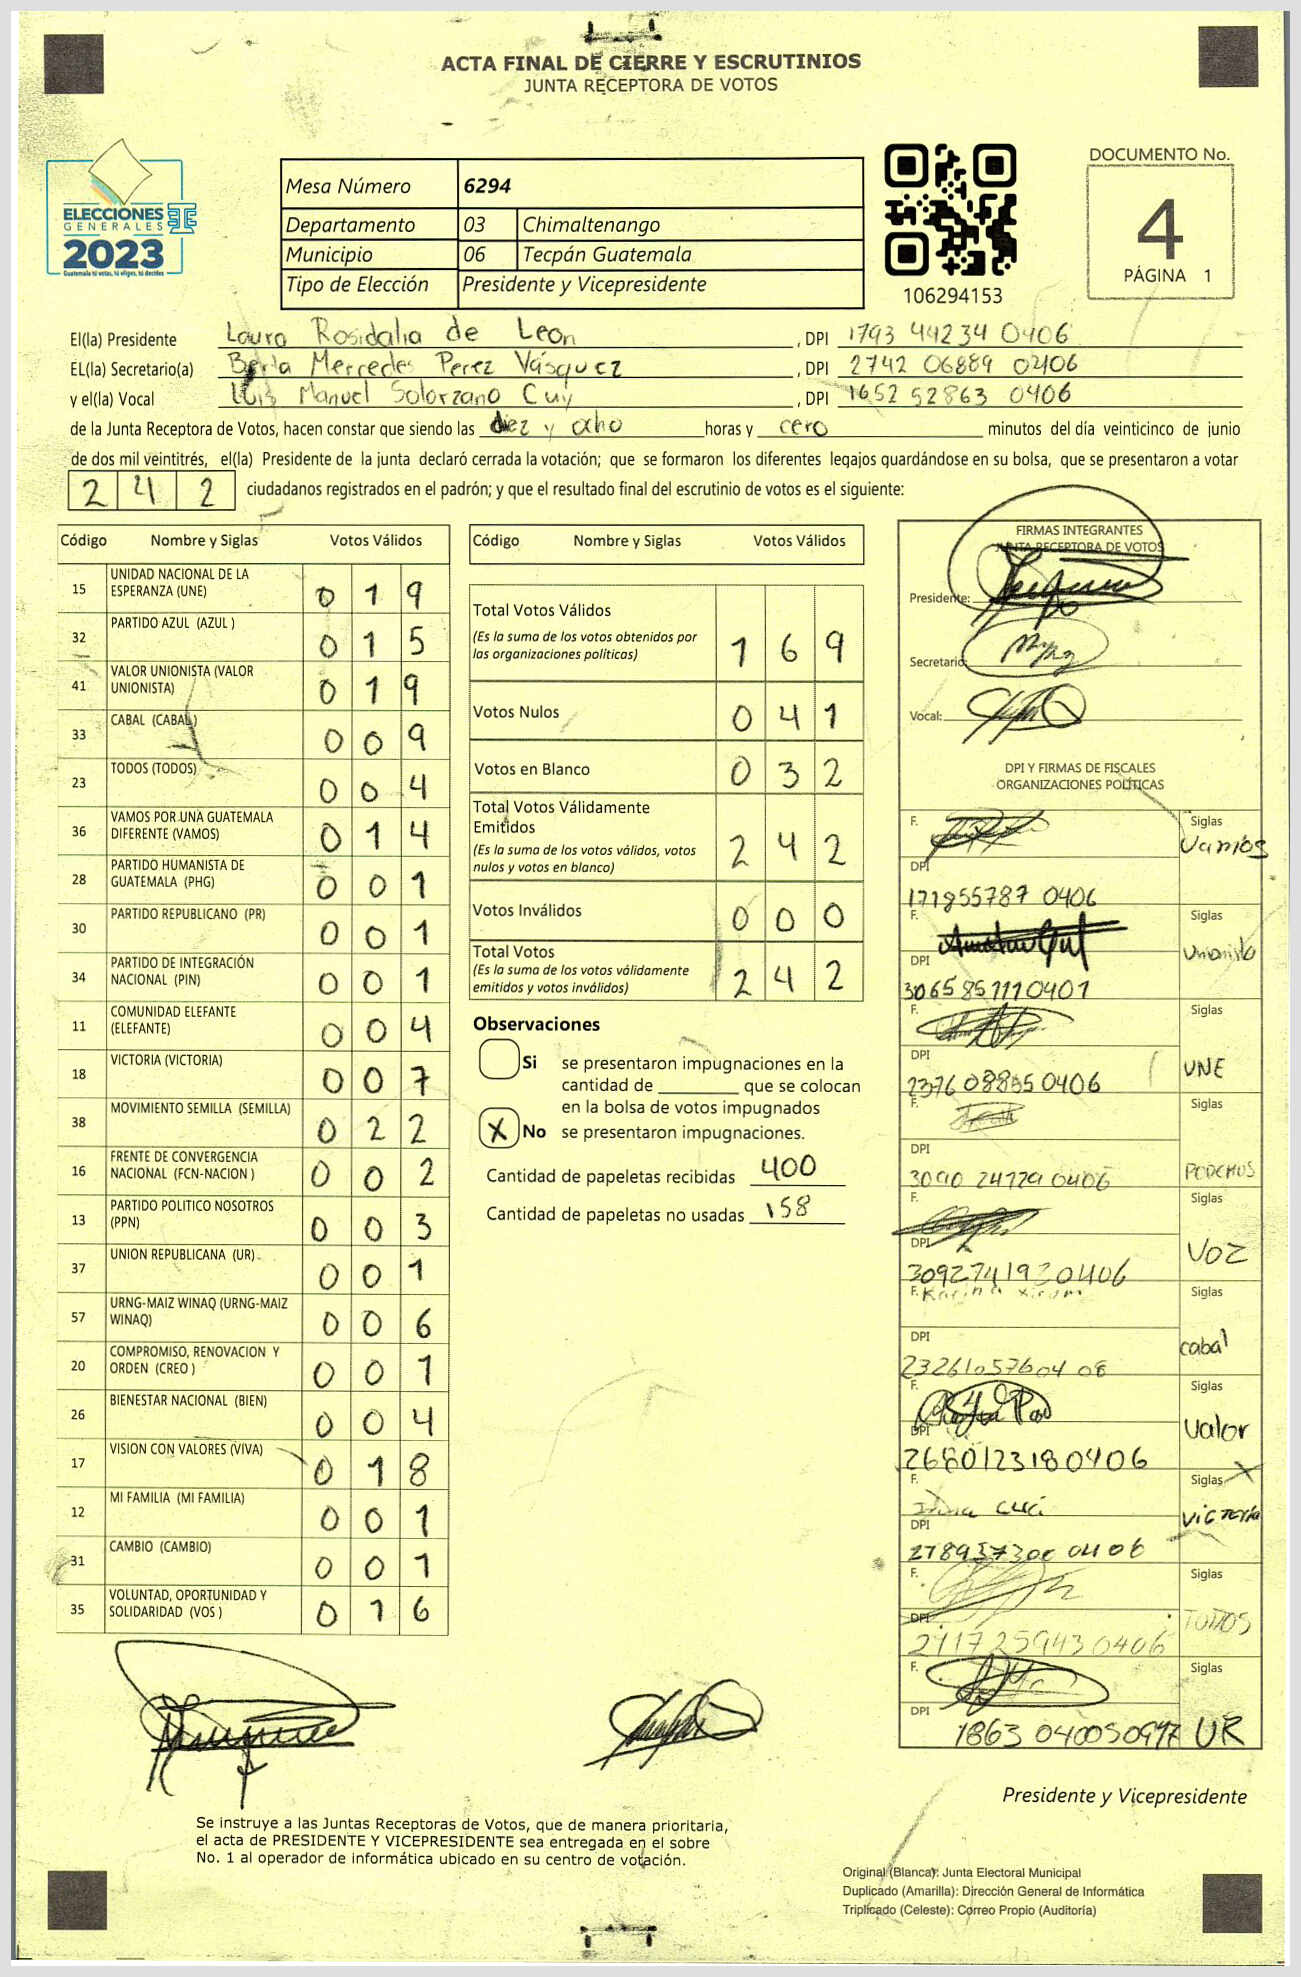 ACTA FINAL DE CIERRE Y ESCRUTINIOS
JUNTA RECEPTORA DE VOTOS
ELECCIONES
GENERALES
2023
Guatemala tú votas, tú eliges, tú decides
Mesa Número 6294
Departamento 03 Chimaltenango
Municipio 06 Tecpán Guatemala
Tipo de Elección Presidente y Vicepresidente
106294153
DOCUMENTO No.
4
PÁGINA 1
El(la) Presidente Laura Rosidalia de Leon , DPI 1793 44234 0406
EL(la) Secretario(a) Berta Mercedes Perez Vásquez , DPI 2742 06889 0406
y el(la) Vocal Luis Manuel Solorzano Cuy , DPI 1652 52863 0406
de la Junta Receptora de Votos, hacen constar que siendo las diez y ocho horas y cero minutos del día veinticinco de junio
de dos mil veintitrés, el(la) Presidente de la junta declaró cerrada la votación; que se formaron los diferentes legajos quardándose en su bolsa, que se presentaron a votar
242 ciudadanos registrados en el padrón; y que el resultado final del escrutinio de votos es el siguiente:
Código Nombre y Siglas Votos Válidos
15 UNIDAD NACIONAL DE LA ESPERANZA (UNE) 0 1 9
32 PARTIDO AZUL (AZUL ) 0 1 5
41 VALOR UNIONISTA (VALOR UNIONISTA) 0 1 9
33 CABAL (CABAL) 0 0 9
23 TODOS (TODOS) 0 0 4
36 VAMOS POR UNA GUATEMALA DIFERENTE (VAMOS) 0 1 4
28 PARTIDO HUMANISTA DE GUATEMALA (PHG) 0 0 1
30 PARTIDO REPUBLICANO (PR) 0 0 1
34 PARTIDO DE INTEGRACIÓN NACIONAL (PIN) 0 0 1
11 COMUNIDAD ELEFANTE (ELEFANTE) 0 0 4
18 VICTORIA (VICTORIA) 0 0 7
38 MOVIMIENTO SEMILLA (SEMILLA) 0 2 2
16 FRENTE DE CONVERGENCIA NACIONAL (FCN-NACION ) 0 0 2
13 PARTIDO POLITICO NOSOTROS (PPN) 0 0 3
37 UNION REPUBLICANA (UR) 0 0 1
57 URNG-MAIZ WINAQ (URNG-MAIZ WINAQ) 0 0 6
20 COMPROMISO, RENOVACION Y ORDEN (CREO ) 0 0 1
26 BIENESTAR NACIONAL (BIEN) 0 0 4
17 VISION CON VALORES (VIVA) 0 1 8
12 MI FAMILIA (MI FAMILIA) 0 0 1
31 CAMBIO (CAMBIO) 0 0 1
35 VOLUNTAD, OPORTUNIDAD Y SOLIDARIDAD (VOS ) 0 1 6
Código Nombre y Siglas Votos Válidos
Total Votos Válidos 1 6 9
(Es la suma de los votos obtenidos por
las organizaciones políticas)
Votos Nulos 0 4 1
Votos en Blanco 0 3 2
Total Votos Válidamente
Emitidos 2 4 2
(Es la suma de los votos válidos, votos
nulos y votos en blanco)
Votos Inválidos 0 0 0
Total Votos 2 4 2
(Es la suma de los votos válidamente
emitidos y votos inválidos)
Observaciones
Si se presentaron impugnaciones en la
cantidad de ________ que se colocan
en la bolsa de votos impugnados
X No se presentaron impugnaciones.
Cantidad de papeletas recibidas 400
Cantidad de papeletas no usadas 158
FIRMAS INTEGRANTES
JUNTA RECEPTORA DE VOTOS
Presidente:
Secretario:
Vocal:
DPI Y FIRMAS DE FISCALES
ORGANIZACIONES POLÍTICAS
F. Siglas Vamos
DPI
171855787 0406
F. Siglas Unionista
DPI
3065851110401
F. Siglas UNE
DPI
F. Siglas PODEMOS
DPI
F. Siglas VOZ
DPI
3092741920406
F. Siglas cabal
DPI
2326105760408
F. Siglas Valor
DPI
2680123180406
F. Siglas VICTORIA
DPI
F. Siglas TODOS
DPI
F. Siglas UR
DPI
Presidente y Vicepresidente
Se instruye a las Juntas Receptoras de Votos, que de manera prioritaria,
el acta de PRESIDENTE Y VICEPRESIDENTE sea entregada en el sobre
No. 1 al operador de informática ubicado en su centro de votación.
Original (Blanca): Junta Electoral Municipal
Duplicado (Amarilla): Dirección General de Informática
Triplicado (Celeste): Correo Propio (Auditoría)